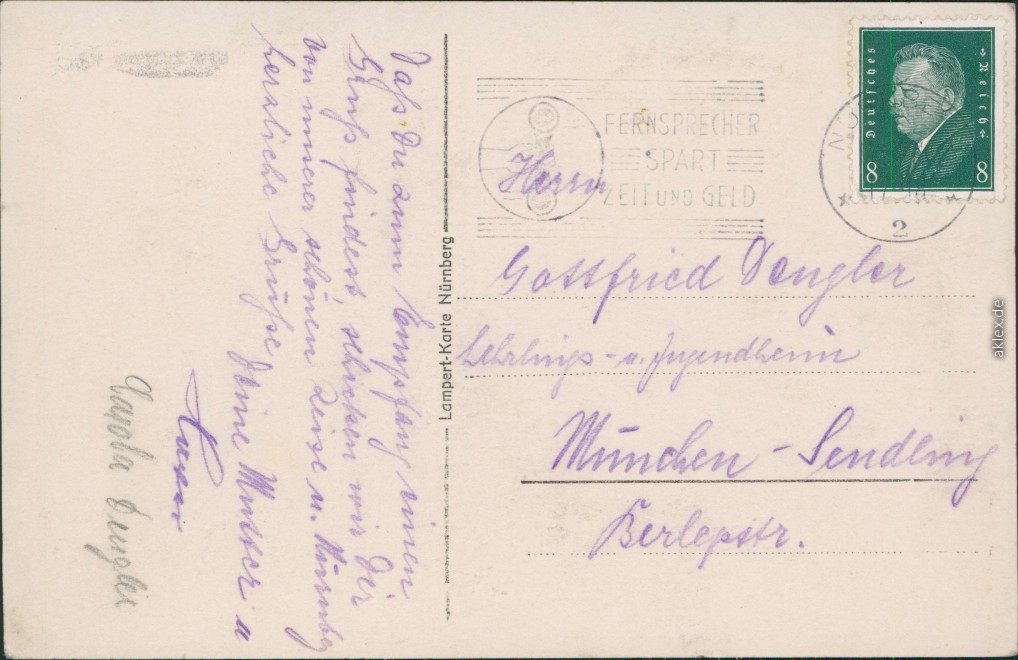 Daß Du zum Empfang einen
Gruß findest, schicken wir Dir
von unserer schönen Reise u. Nürnberg
herzliche Grüße Deine Mutter u
Dengler
Lampert-Karte Nürnberg
FERNSPRECHER
SPART
ZEIT UND GELD
Deutsches Reich
8 8
2
Herrn
Gottfried Dengler
Lehrlings- u. Jugendheim
München - Sendling
Berlepstr.
aklex.de